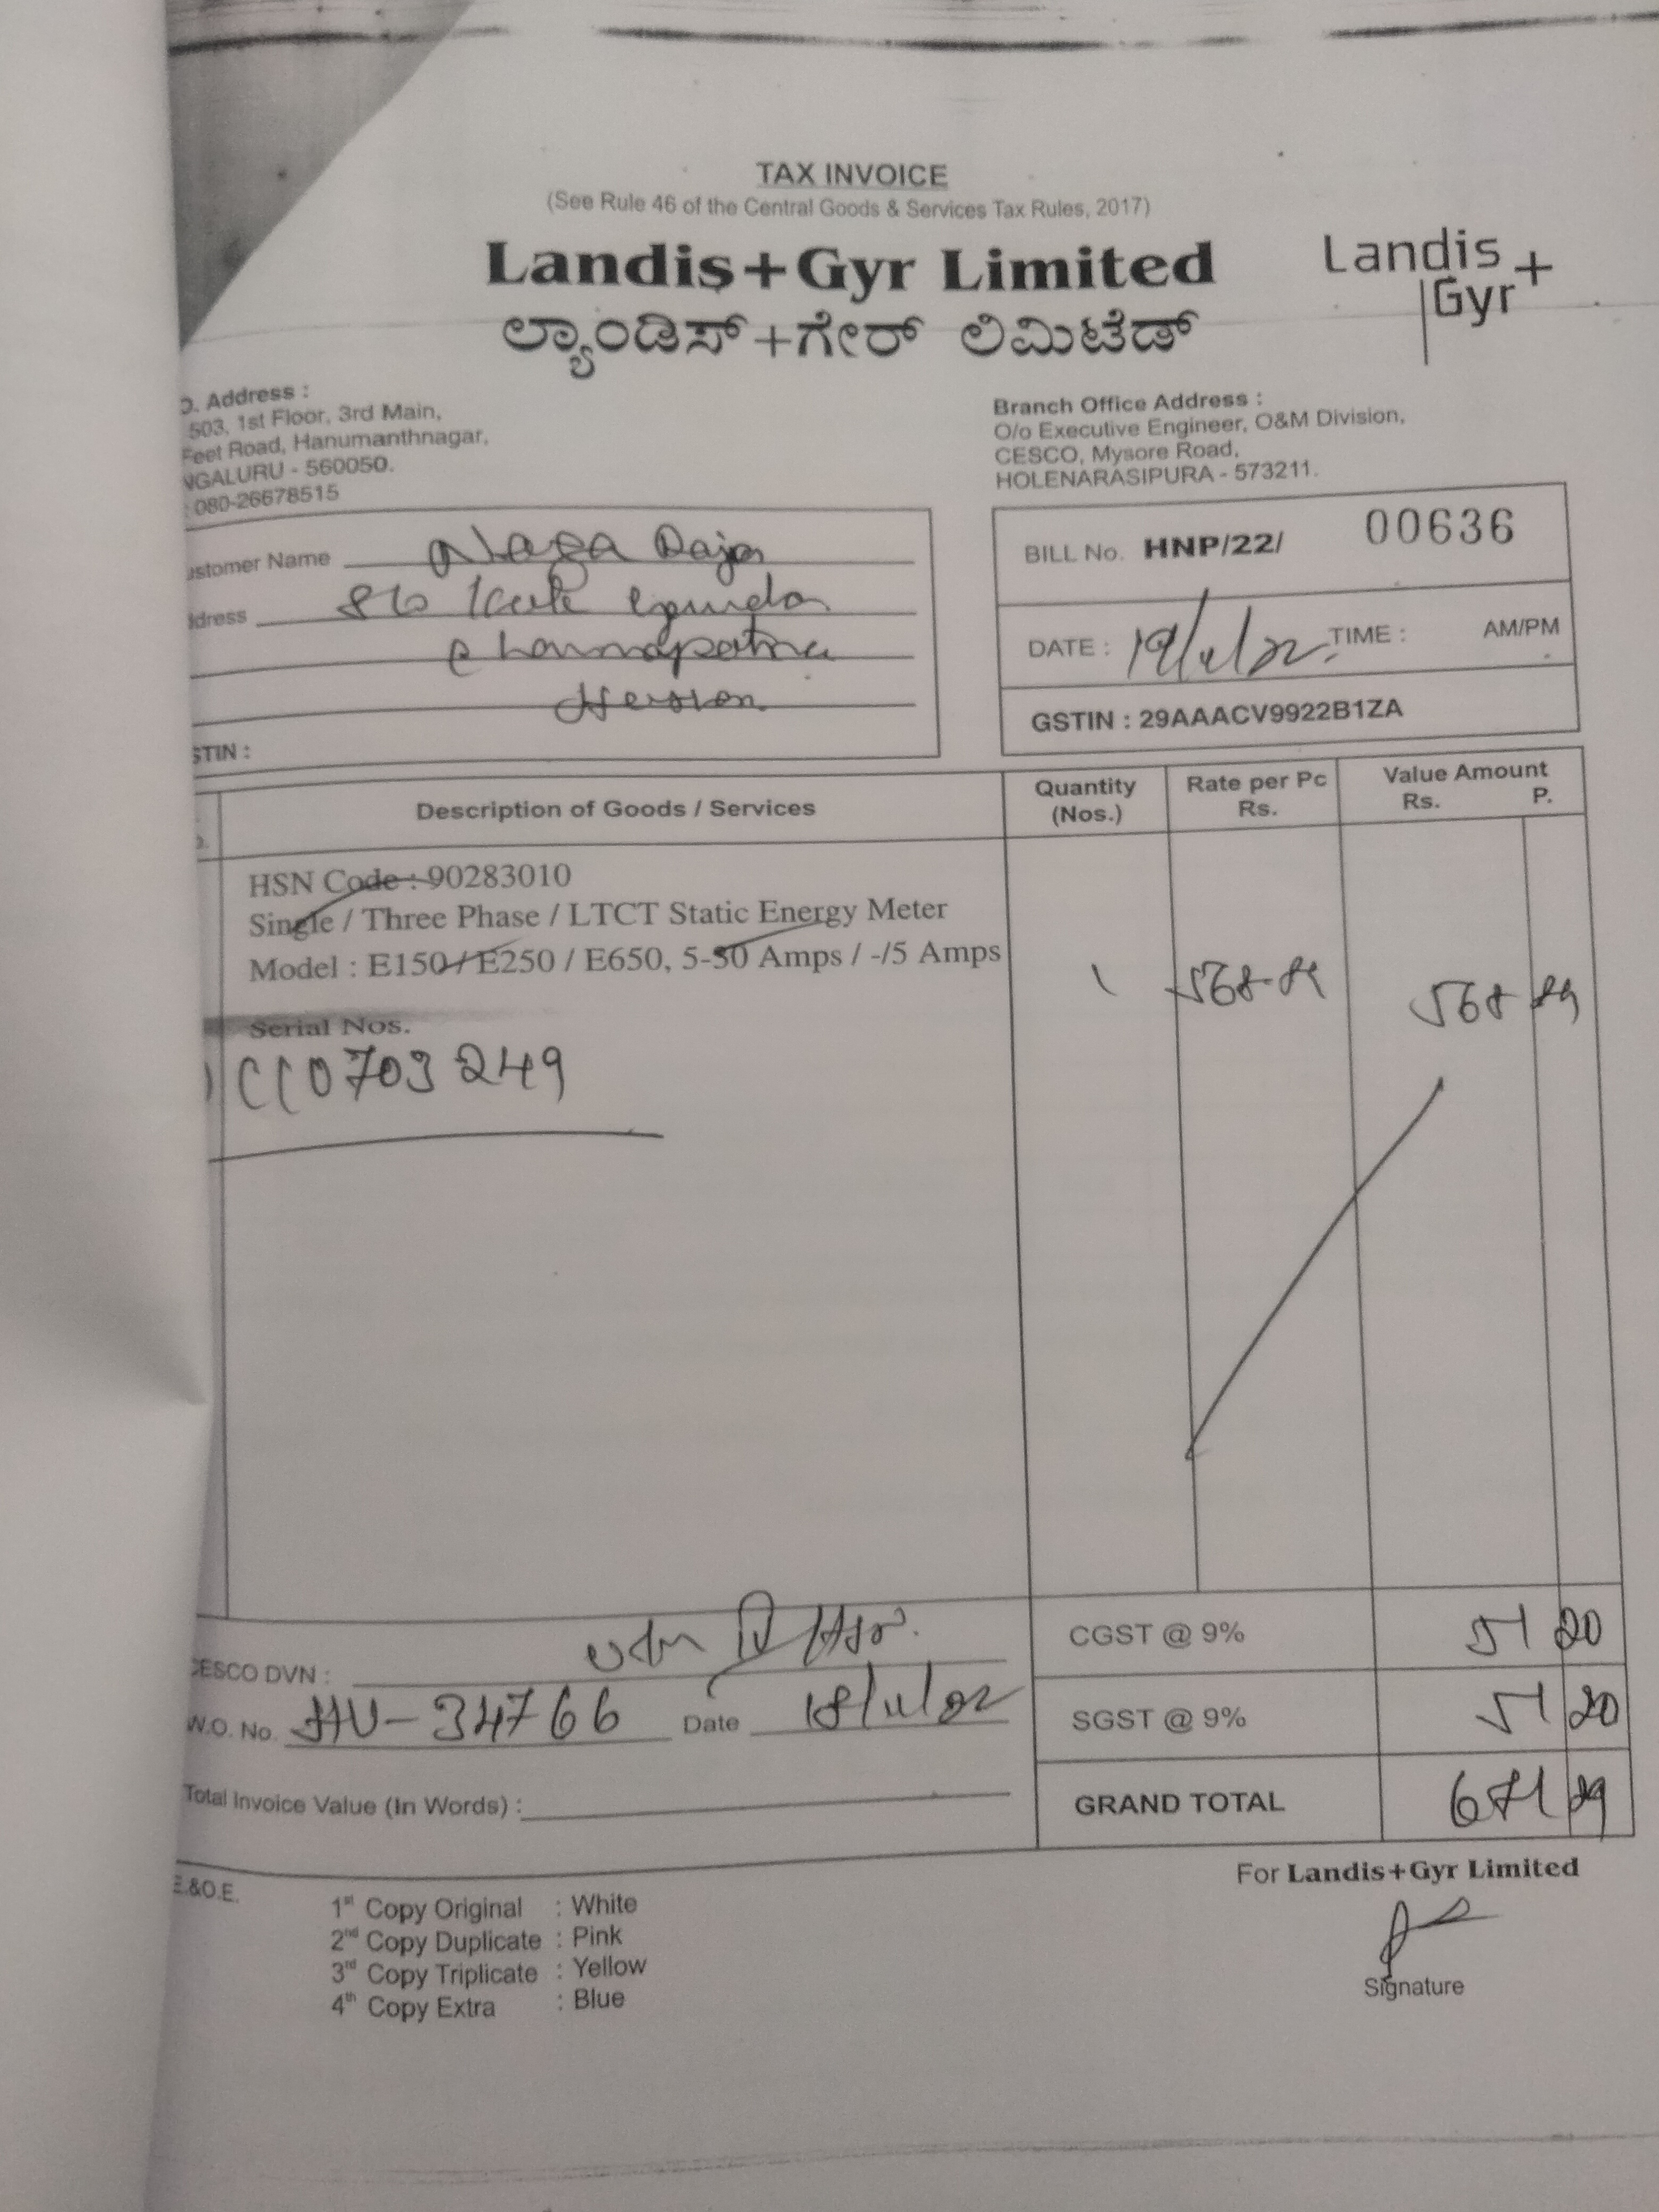 TAX INVOICE
(See Rule 46 of the Central Goods & Services Tax Rules, 2017)
Landis+Gyr Limited
Landis
Gyr+
ಲ್ಯಾಂಡಿಸ್+ಗೇರ್ ಲಿಮಿಟೆಡ್
Address :
503, 1st Floor, 3rd Main,
Feet Road, Hanumanthnagar,
NGALURU - 560050.
: 080-26678515
Branch Office Address :
O/o Executive Engineer, O&M Division,
CESCO, Mysore Road,
HOLENARASIPURA - 573211.
ustomer Name Naga Raja
ddress S/o
STIN :
BILL No. HNP/22/ 00636
DATE : 19/11/22 TIME : AM/PM
GSTIN : 29AAACV9922B1ZA
Description of Goods / Services
Quantity (Nos.)
Rate per Pc Rs.
Value Amount Rs. P.
HSN Code : 90283010
Single / Three Phase / LTCT Static Energy Meter
Model : E150 / E250 / E650, 5-30 Amps / -/5 Amps
1 568-89 568 89
Serial Nos.
CC0703249
CESCO DVN :
W.O. No. HU-34766 Date 18/11/22
Total Invoice Value (In Words) :
CGST @ 9% 51 20
SGST @ 9% 51 20
GRAND TOTAL 671 29
E.&O.E.
1st Copy Original : White
2nd Copy Duplicate : Pink
3rd Copy Triplicate : Yellow
4th Copy Extra : Blue
For Landis+Gyr Limited
Signature